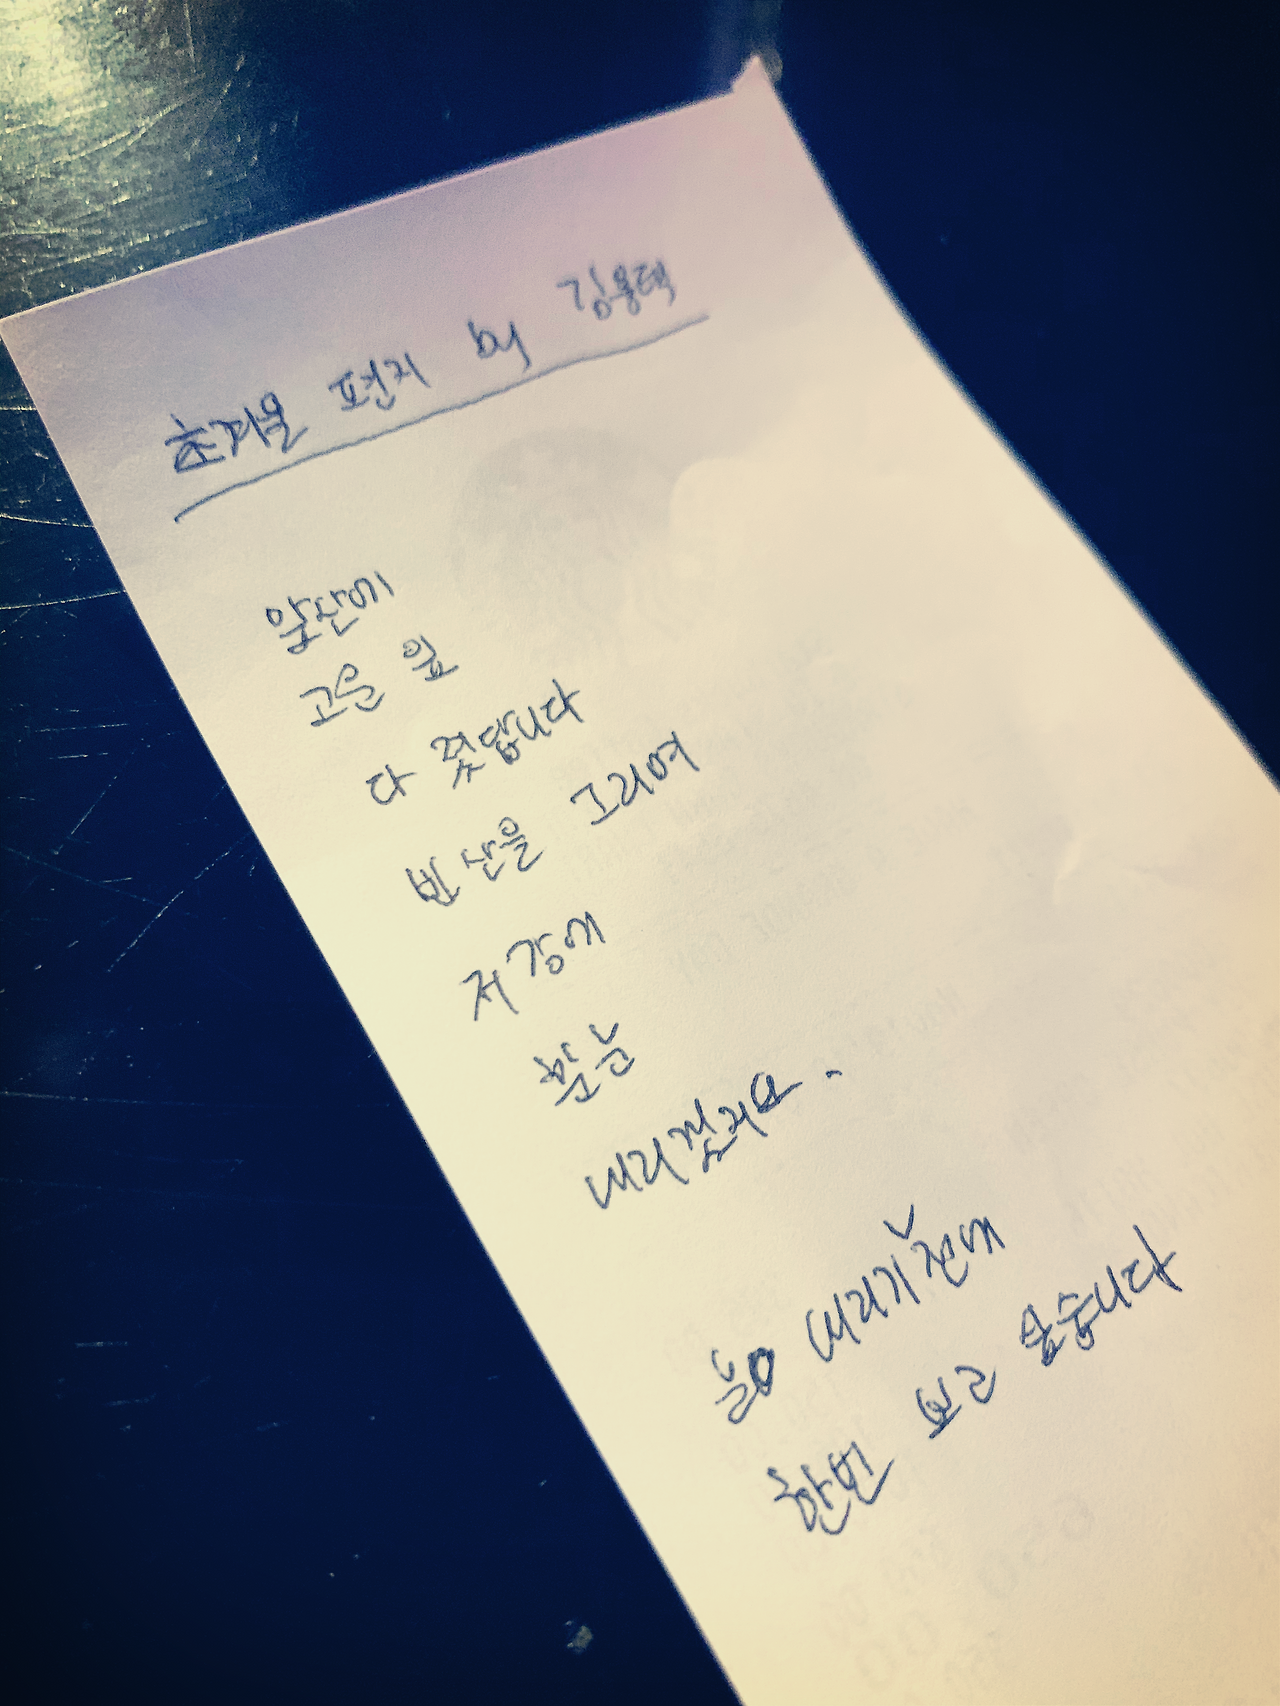 초겨울 편지 by 김용택
앞산에
고운 잎
다 졌답니다
빈 산을 그리며
저 강에
흰 눈
내리겠지요.
눈 내리기 전에
한번 보고 싶습니다